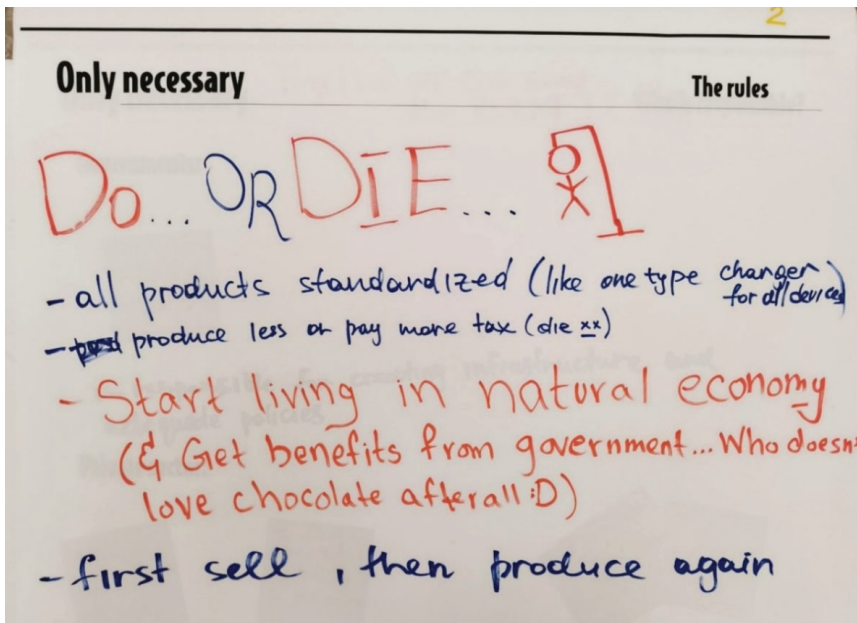 2
Only necessary The rules
Do... OR DIE...
- all products standardized (like one type changer
for all devices)
- produce less or pay more tax (die xx)
- Start living in natural economy
(& Get benefits from government... Who doesn't
love chocolate afterall :D)
- first sell, then produce again